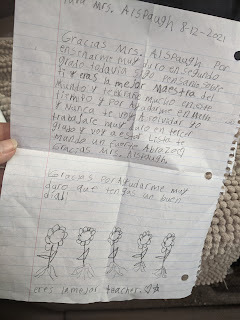 Para Mrs. Alspaugh 8-12-2021
Gracias Mrs. Alspaugh por
enseñarme muy duro en segundo
grado todavia sigo pensando sobre
ti y eras la mejor Maestra del
Mundo y te extrañe mucho en este
tiempo y por Ayudarme en Math
y Nunca te voy A olvidar yo
trabajare muy duro en tercer
grado y voy a estar lista te
mando un fuerte Abrazo
Gracias Mrs. Alspaugh
Gracias por Ayudarme muy
duro que tengas un buen
dia!
eres la mejor teacher